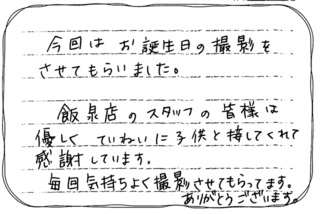 今回は お誕生日の撮影を
させてもらいました。
飯泉店のスタッフの皆様は
優しく ていねいに子供と接してくれて
感謝しています。
毎回気持ちよく撮影させてもらってます。
ありがとうございます。